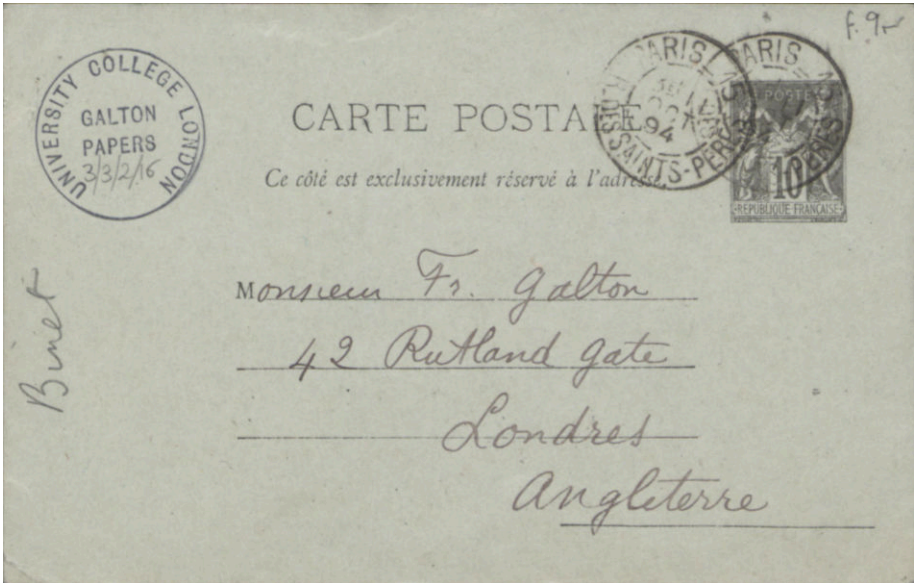 f. 9r
UNIVERSITY COLLEGE LONDON
GALTON
PAPERS
3/3/2/16
CARTE POSTALE
Ce côté est exclusivement réservé à l'adresse.
PARIS 15
R. DES SAINTS-PÈRES
OCT
94
PARIS 15
POSTE
10
REPUBLIQUE FRANÇAISE
Binet
Monsieur Fr. Galton
42 Rutland Gate
Londres
Angleterre